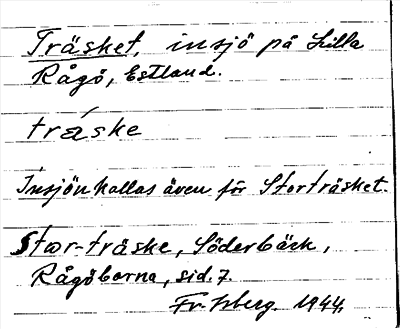 Träsket, insjö på Lilla
Rågö, Estland.
träske
Insjön kallas även för Storträsket.
Stor-träske, Söderbäck,
Rågöborna, sid. 7.
Fr. Isberg. 1944.